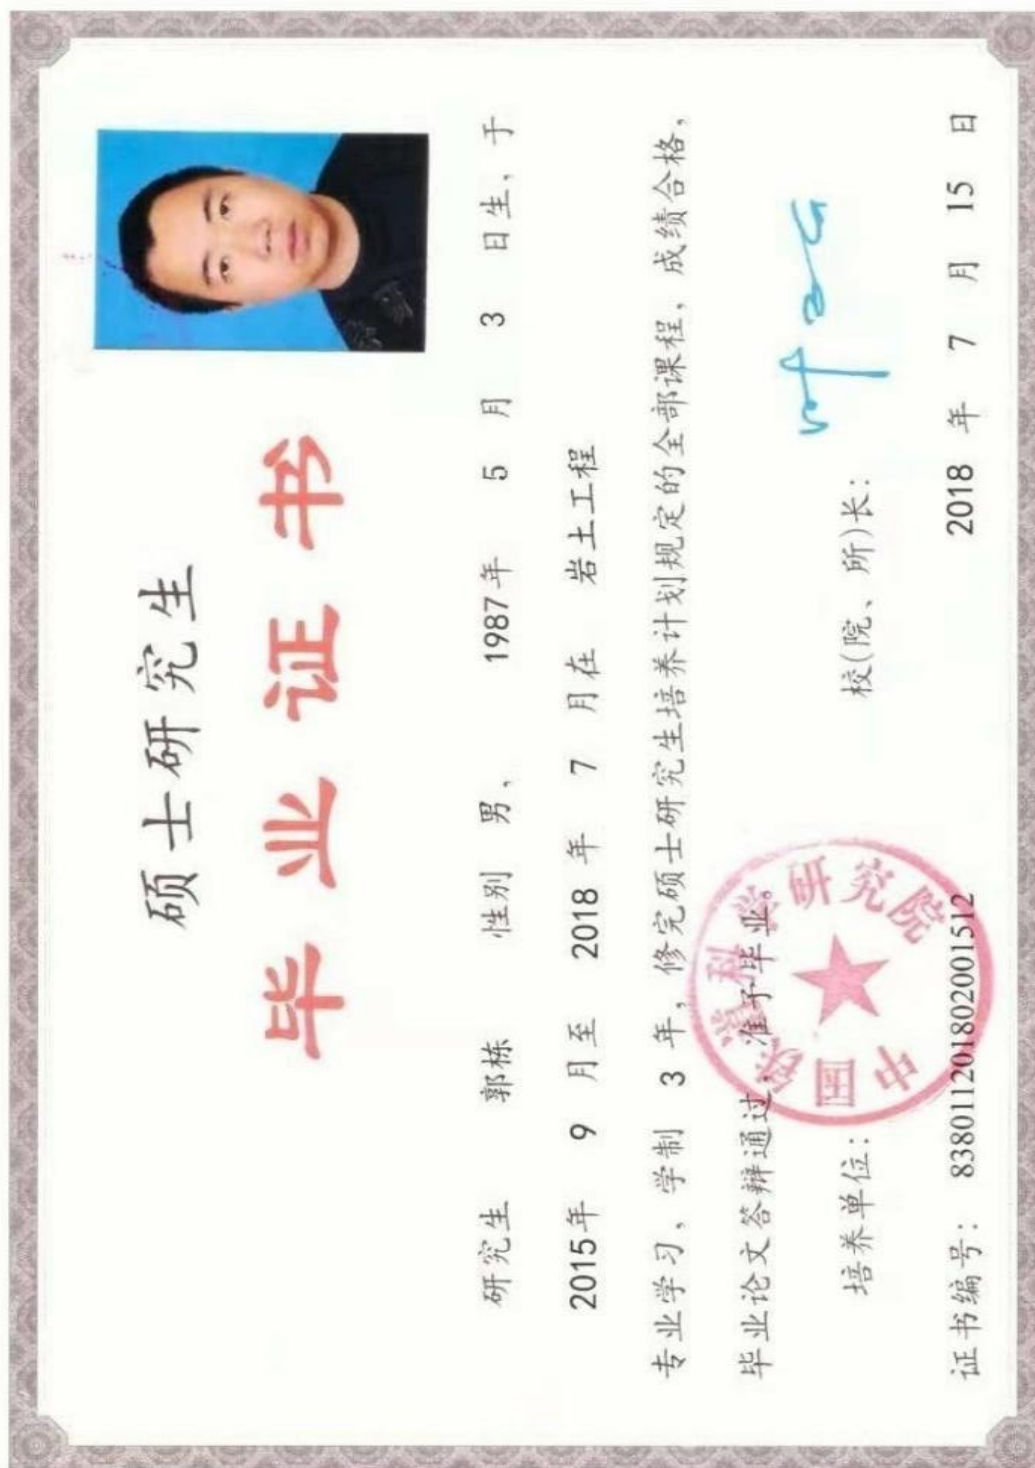 硕士研究生
毕业证书
研究生 郭栋 性别 男, 1987年 5 月 3 日生, 于
2015年 9 月至 2018 年 7 月在 岩土工程
专业学习, 学制 3 年, 修完硕士研究生培养计划规定的全部课程, 成绩合格,
毕业论文答辩通过, 准予毕业。
培养单位: 校(院、所)长:
中国铁道科学研究院
证书编号: 838011201802001512 2018 年 7 月 15 日